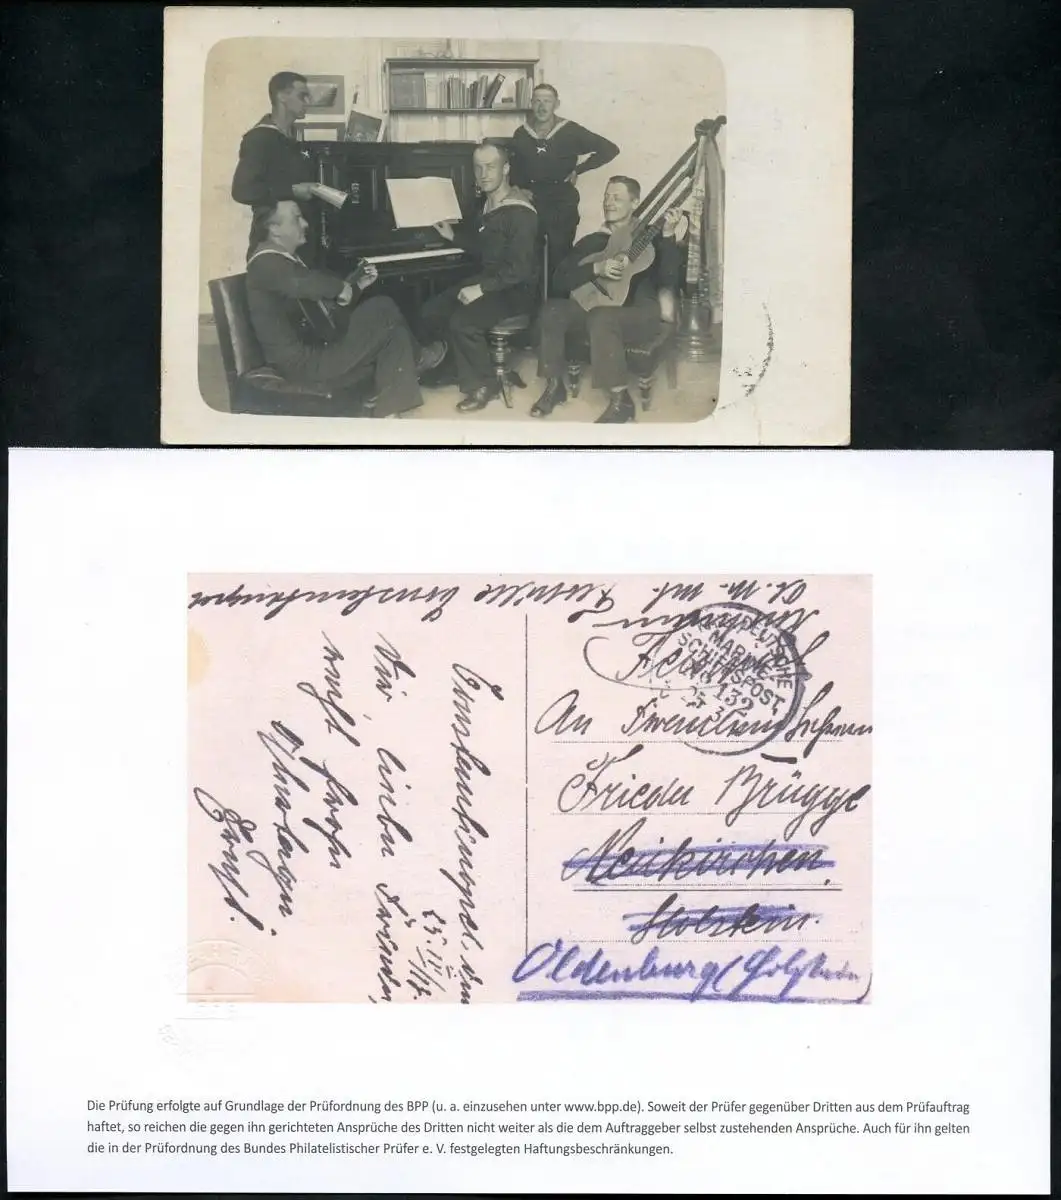 KAIS. DEUTSCHE
MARINE-
SCHIFFSPOST
No 132
25 3
An Fräulein
Frieda Brügge
Neukirchen
Holstein.
Oldenburg (Holstein)
Constantinopel, den
25. III. 16.
Dir, liebe Frieda,
recht frohe
Ostertage
Ernst.
Die Prüfung erfolgte auf Grundlage der Prüfordnung des BPP (u. a. einzusehen unter www.bpp.de). Soweit der Prüfer gegenüber Dritten aus dem Prüfauftrag
haftet, so reichen die gegen ihn gerichteten Ansprüche des Dritten nicht weiter als die dem Auftraggeber selbst zustehenden Ansprüche. Auch für ihn gelten
die in der Prüfordnung des Bundes Philatelistischer Prüfer e. V. festgelegten Haftungsbeschränkungen.